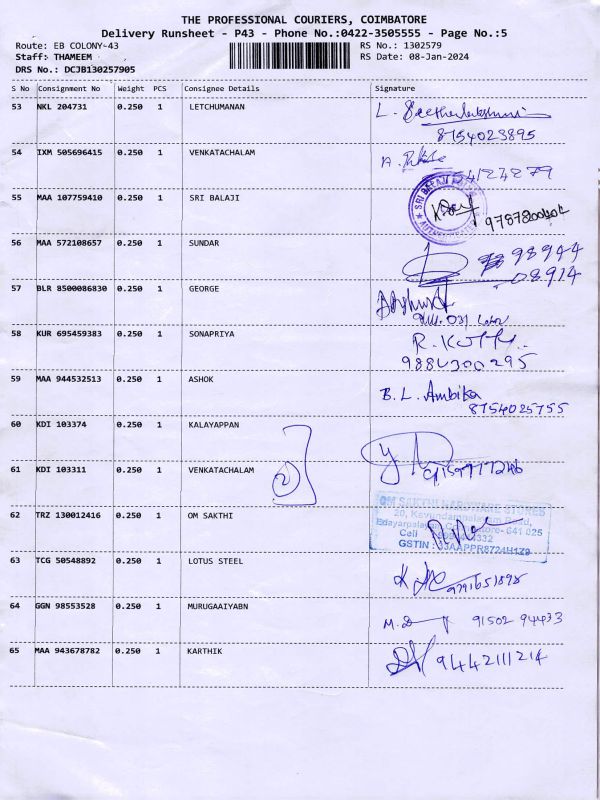 THE PROFESSIONAL COURIERS, COIMBATORE
Delivery Runsheet - P43 - Phone No.:0422-3505555 - Page No.:5
Route: EB COLONY-43 RS No.: 1302579
Staff: THAMEEM RS Date: 08-Jan-2024
DRS No.: DCJB130257905
S No Consignment No Weight PCS Consignee Details Signature
53 NKL 204731 0.250 1 LETCHUMANAN L.
8754023895
54 IXM 505696415 0.250 1 VENKATACHALAM
55 MAA 107759410 0.250 1 SRI BALAJI
SRI
56 MAA 572108657 0.250 1 SUNDAR 98944
08914
57 BLR 8500086830 0.250 1 GEORGE
58 KUR 695459383 0.250 1 SONAPRIYA R.
9884300295
59 MAA 944532513 0.250 1 ASHOK B. L. Ambika
8754025755
60 KDI 103374 0.250 1 KALAYAPPAN
61 KDI 103311 0.250 1 VENKATACHALAM
62 TRZ 130012416 0.250 1 OM SAKTHI
OM SAKTHI HARDWARE STORES
20, Kavundampalayam Road,
Edayarpalayam, Coimbatore- 641 025
Cell
GSTIN : 33AAPPR8724H1Z9
63 TCG 50548892 0.250 1 LOTUS STEEL
9791651898
64 GGN 98553528 0.250 1 MURUGAAIYABN M. 91502 94433
65 MAA 943678782 0.250 1 KARTHIK 9442111214